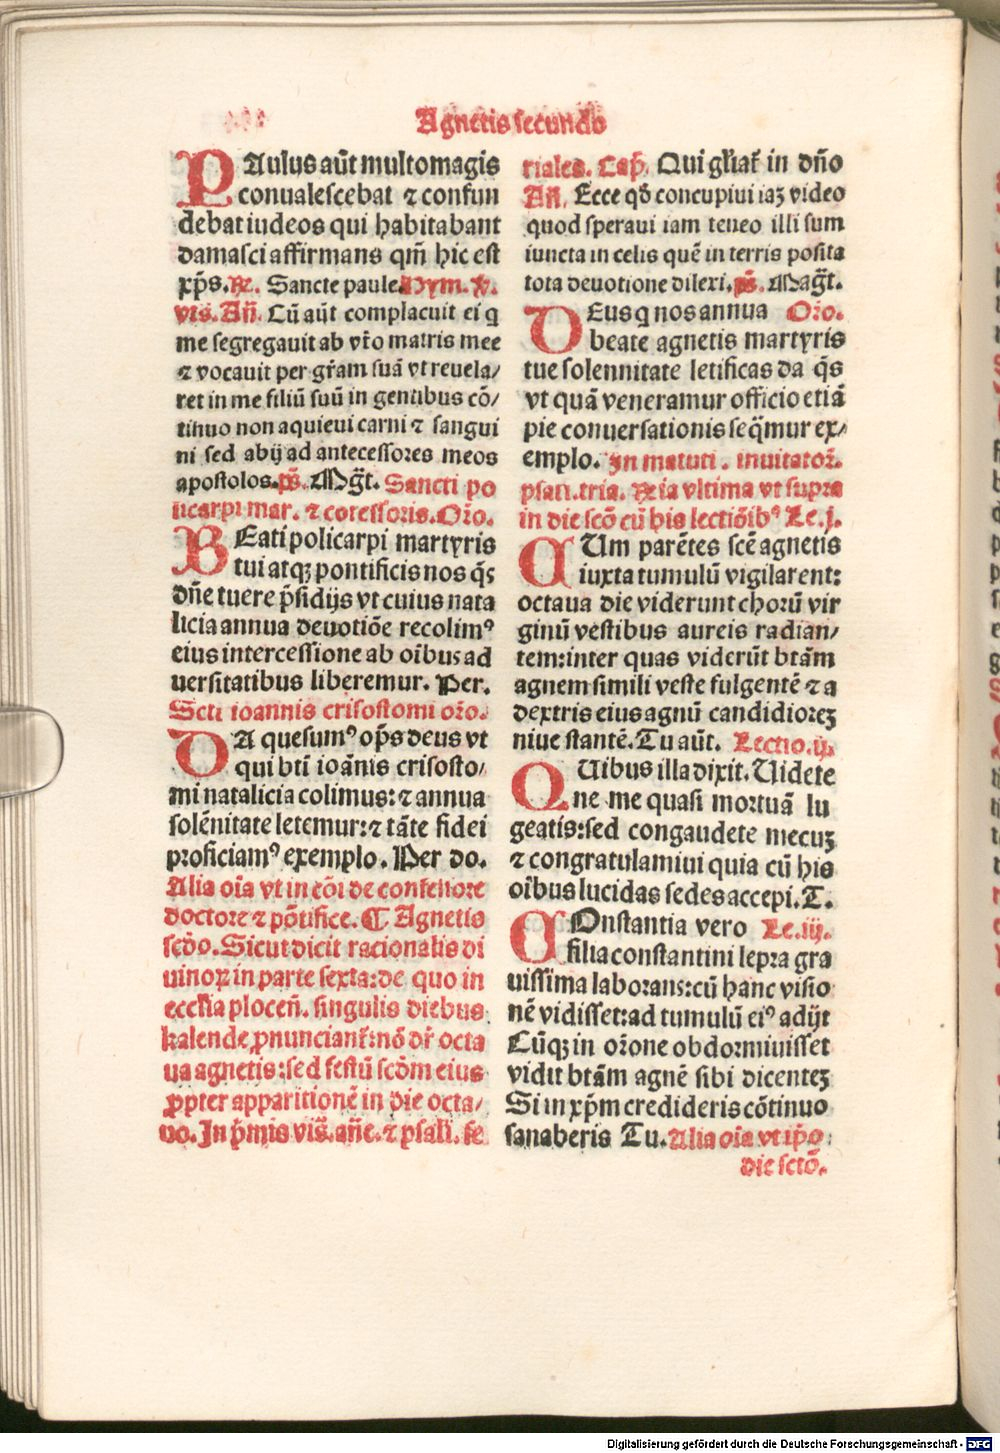 Agnetis secundo
PAulus aūt multomagis
conualescebat ⁊ confun
debat iudeos qui habitabant
damasci affirmans qm̄ hic est
xp̄s. R̄. Sancte paule. Hym. v̄.
vts. Añ. Cū aūt complacuit ei q
me segregauit ab vt̄o matris mee
⁊ vocauit per gr̄am suā vt reuela/
ret in me filiū suū in gentibus cō/
tinuo non aquieui carni ⁊ sangui
ni sed abij ad antecessores meos
apostolos. p̄s. Mḡt. Sancti po
licarpi mar. ⁊ cōfessoris. Oꝛo.
BEati policarpi martyris
tui atqꝫ pontificis nos q̄s
dn̄e tuere p̄sidijs vt cuius nata
licia annua deuotiōe recolimꝰ
eius intercessione ab oībus ad
uersitatibus liberemur. Per.
Scti ioannis crisostomi oꝛo.
DA quesumꝰ op̄s deus vt
qui btī ioānis crisosto/
mi natalicia colimus: ⁊ annua
solēnitate letemur: ⁊ tāte fidei
proficiamꝰ exemplo. Per do.
Alia oīa vt in cōi de confessore
doctore ⁊ pōtifice. ¶ Agnetis
sedo. Sicut dicit racionalis di
uinoꝝ in parte sexta: de quo in
ecclīa ploceñ. singulis diebus
kalende ꝓnunciant̄: nō dr̄ octa
ua agnetis: sed festū scdm eius
ꝓpter apparitionē in die octa/
vo. In p̄mis vis̄. añe. ⁊ psali. fe
riales. Cap̄. Qui gl̄iat̄ in dn̄o
Añ. Ecce qd̄ concupiui iaꝫ video
quod speraui iam teneo illi sum
iuncta in celis quē in terris posita
tota deuotione dilexi. p̄s. Maḡt.
DEus q nos annua Oꝛo.
beate agnetis martyris
tue solennitate letificas da q̄s
vt quā veneramur officio etiā
pie conuersationis seq̄mur ex/
emplo. In matuti. inuitatoꝝ.
psalt. tria. R̄ia vltima vt supra
in die scō cū his lectiōibꝰ Le. j.
CUm parētes scē agnetis
iuxta tumulū vigilarent:
octaua die viderunt choꝛū vir
ginū vestibus aureis radian/
tem: inter quas viderūt btām
agnem simili veste fulgentē ⁊ a
dextris eius agnū candidioꝛeꝫ
niue stantē. Tu aūt. Lectio. ij.
QUibus illa dixit. Uidete
ne me quasi moꝛtuā lu
geatis: sed congaudete mecuꝫ
⁊ congratulamiui quia cū his
oībus lucidas sedes accepi. T.
COnstantia vero Le. iij.
filia constantini lepꝛa gra
uissima laboꝛans: cū hanc visio
nē vidisset: ad tumulū eiꝰ adijt
Cūqꝫ in oꝛone obdoꝛmiuisset
vidit btām agnē sibi dicenteꝫ
Si in xp̄m credideris cōtinuo
sanaberis Tu. Alia oīa vt ip̄o
die sctō.
Digitalisierung gefördert durch die Deutsche Forschungsgemeinschaft - DFG